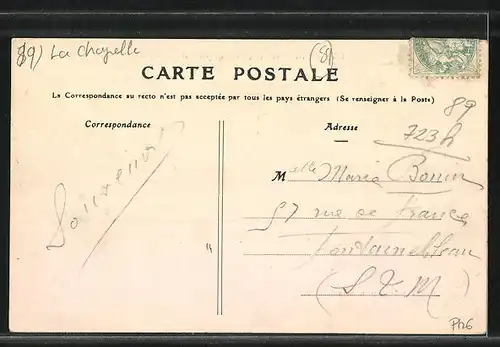 89) La Chapelle
89
CARTE POSTALE
La Correspondance au recto n'est pas acceptée par tous les pays étrangers (Se renseigner à la Poste)
89
Correspondance
Adresse
723h
Souvenir
Melle Maria Bonin
57 rue de France
Fontainebleau
(S. & M)
Ph6